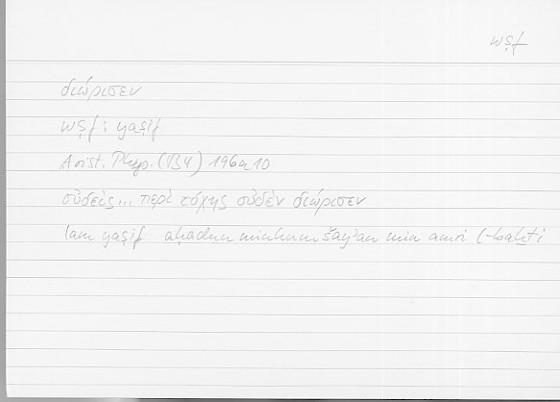 wṣf
διώρισεν
wṣf : yaṣif
Arist. Phys. (B4) 196a10
οὐδεὶς... περὶ τύχης οὐδὲν διώρισεν
lam yaṣif aḥadun minhum šay'an min amri l-baḫti